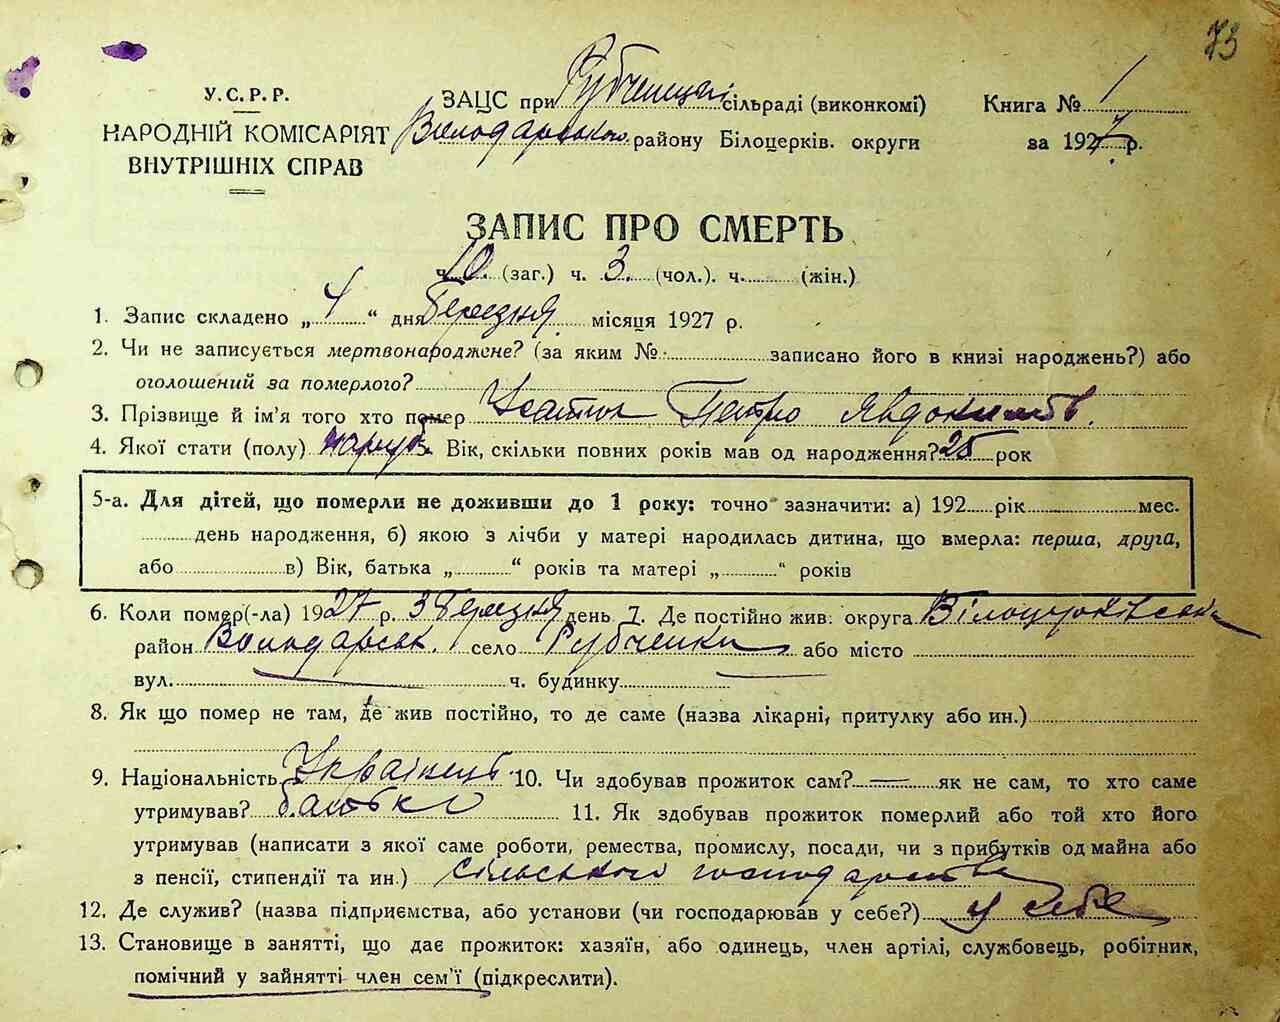 73
У.С.Р.Р.
НАРОДНІЙ КОМІСАРІЯТ
ВНУТРІШНІХ СПРАВ
ЗАЦС при Рубченецькі сільраді (виконкомі)
Володарського району Білоцерків. округи
Книга № 1
за 1927 р.
ЗАПИС ПРО СМЕРТЬ
ч. 10. (заг.) ч. 3. (чол.). ч. (жін.)
1. Запис складено „ 4 “ дня березня місяця 1927 р.
2. Чи не записується мертвонароджене? (за яким № записано його в книзі народжень?) або
оголошений за померлого?
3. Прізвище й ім'я того хто помер Петро
4. Якої стати (полу) 5. Вік, скільки повних років мав од народження? 25 рок
5-а. Для дітей, що померли не доживши до 1 року: точно зазначити: а) 192 рік мес.
день народження, б) якою з лічби у матері народилась дитина, що вмерла: перша, друга,
або в) Вік, батька „ “ років та матері „ “ років
6. Коли помер(-ла) 1927 р. 3 березня день 7. Де постійно жив: округа Білоцерківська
район Володарськ. село Рубченки або місто
вул. ч. будинку
8. Як що помер не там, де жив постійно, то де саме (назва лікарні, притулку або ин.)
9. Національність Українець 10. Чи здобував прожиток сам? — як не сам, то хто саме
утримував? батько 11. Як здобував прожиток померлий або той хто його
утримував (написати з якої саме роботи, ремества, промислу, посади, чи з прибутків од майна або
з пенсії, стипендії та ин.) сільського господарства
12. Де служив? (назва підприємства, або установи (чи господарював у себе?) у себе
13. Становище в занятті, що дає прожиток: хазяїн, або одинець, член артілі, службовець, робітник,
помічний у зайнятті член сем'ї (підкреслити).